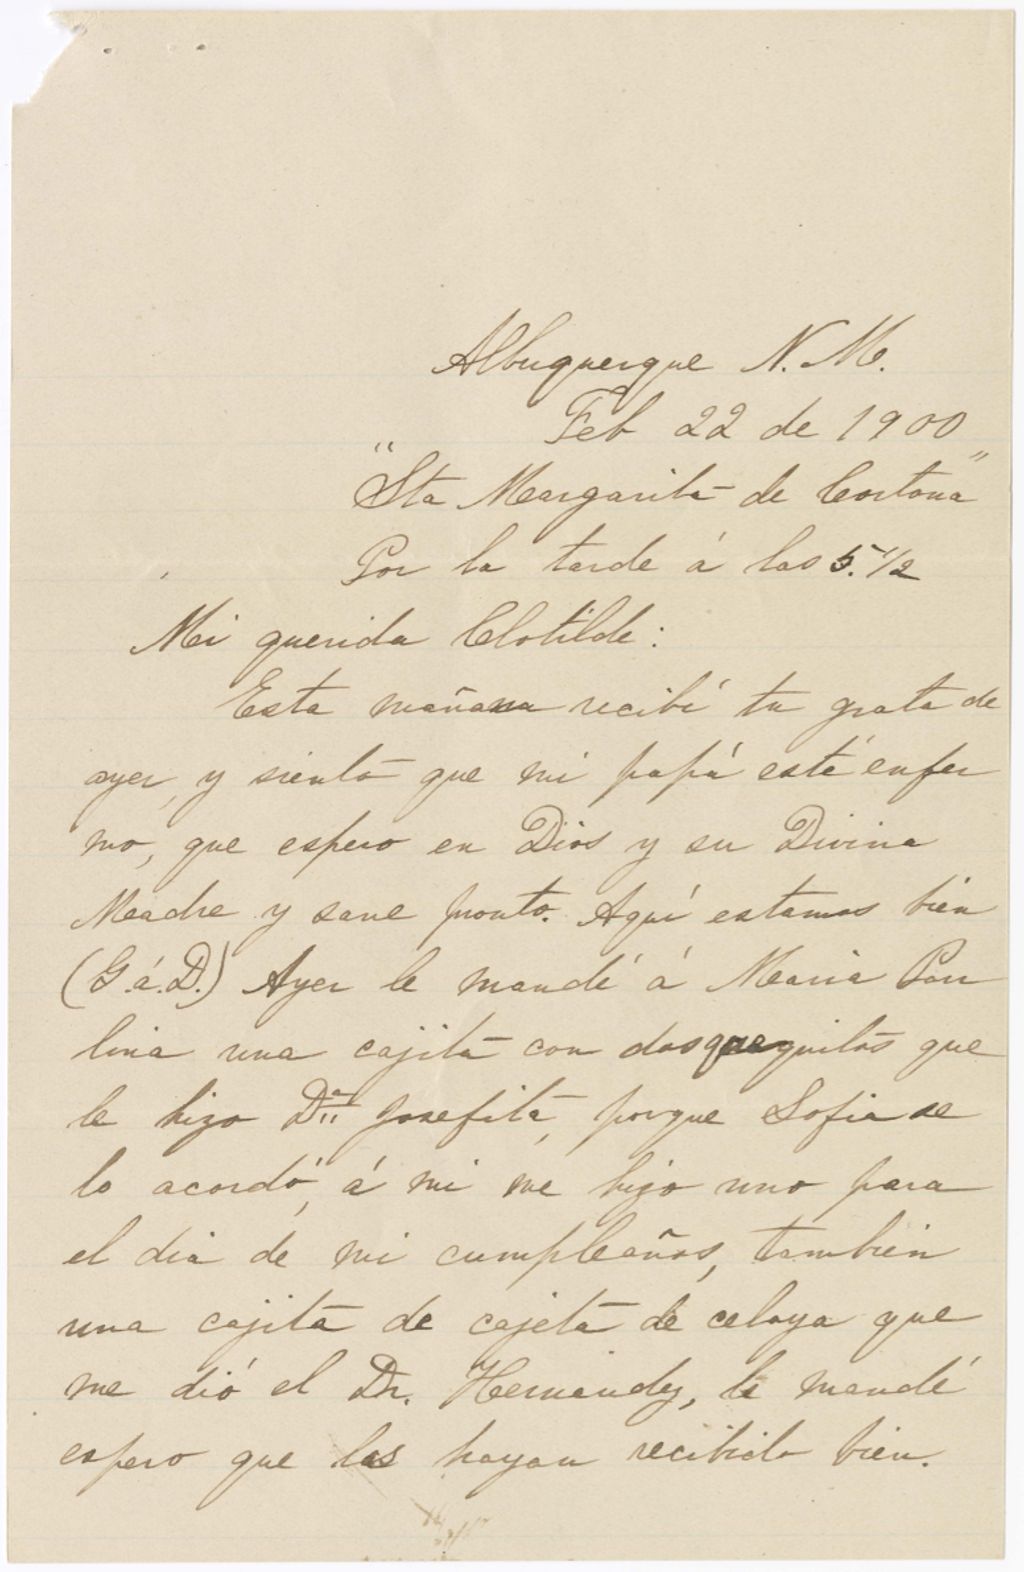 Albuquerque N. M.
Feb 22 de 1900
"Sta Margarita de Cortona"
Por la tarde á las 5. 1/2
Mi querida Clotilde:
Esta mañana recibí tu grata de
ayer, y siento que mi papá esté enfer
mo, que espero en Dios y su Divina
Madre y sane pronto. Aquí estamos bien
(G. á. D.) Ayer le mandé á Maria Pau
lina una cajita con dos queguitos que
le hizo Dª Josefita, porque Sofia se
lo acordó, á mi me hizo uno para
el dia de mi cumpleaños, tambien
una cajita de cajeta de celaya que
me dió el Dr. Hernandez, le mandé
espero que las hayan recibido bien.